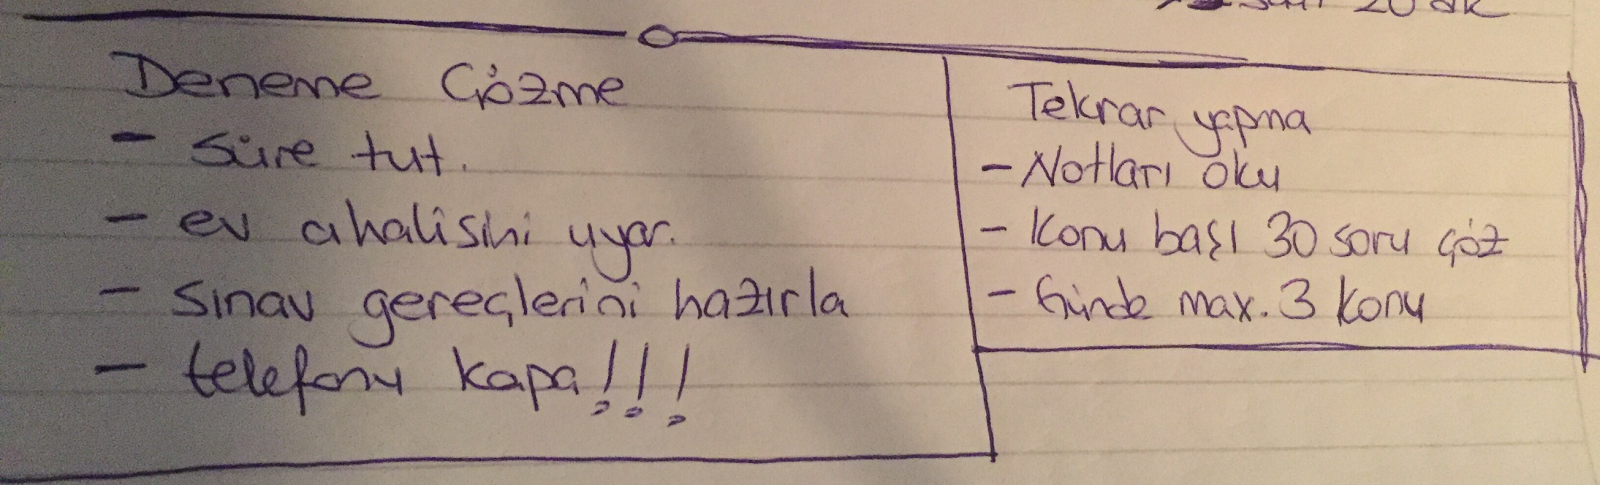 20 dk
Deneme Çözme
- süre tut.
- ev ahalisini uyar.
- sınav gereçlerini hazırla
- telefonu kapa!!!
Tekrar yapma
- Notları oku
- Konu başı 30 soru çöz
- Günde max. 3 konu